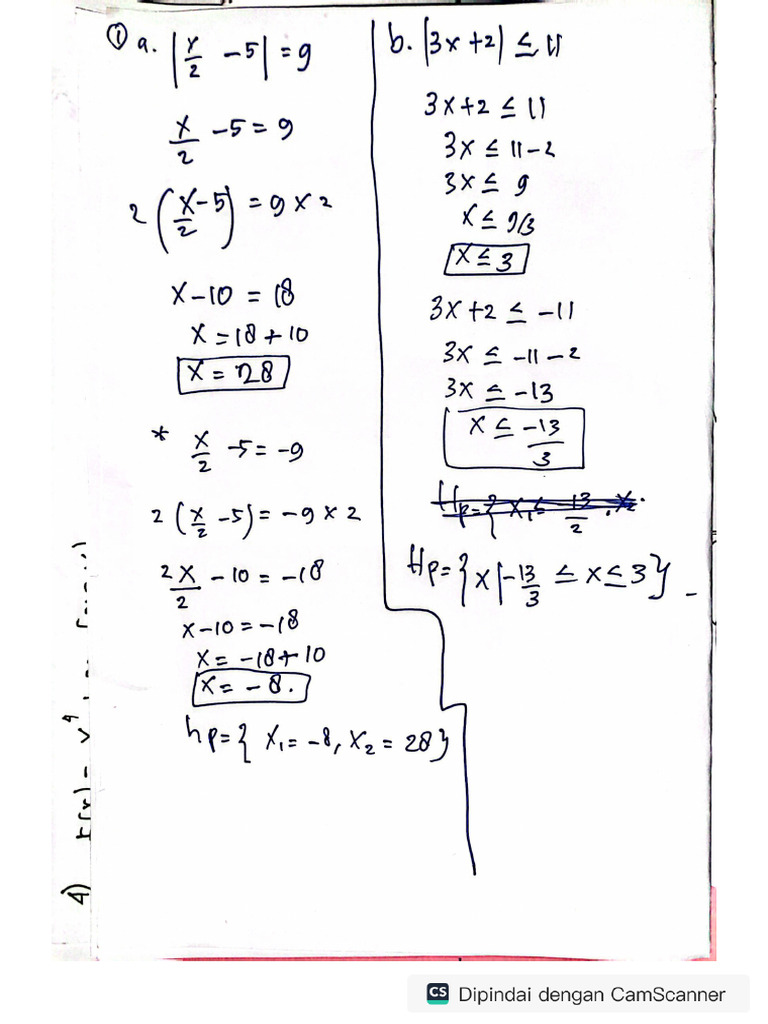 ① a. |x/2 - 5| = 9
x/2 - 5 = 9
2 (x/2 - 5) = 9 x 2
x - 10 = 18
x = 18 + 10
x = 28
* x/2 - 5 = -9
2 (x/2 - 5) = -9 x 2
2x/2 - 10 = -18
x - 10 = -18
x = -18 + 10
x = -8.
hp = { x₁ = -8, x₂ = 28 }
b. |3x + 2| ≤ 11
3x + 2 ≤ 11
3x ≤ 11 - 2
3x ≤ 9
x ≤ 9/3
x ≤ 3
3x + 2 ≤ -11
3x ≤ -11 - 2
3x ≤ -13
x ≤ -13/3
Hp = { x | -13/3 ≤ x ≤ 3 }
4)
CS Dipindai dengan CamScanner